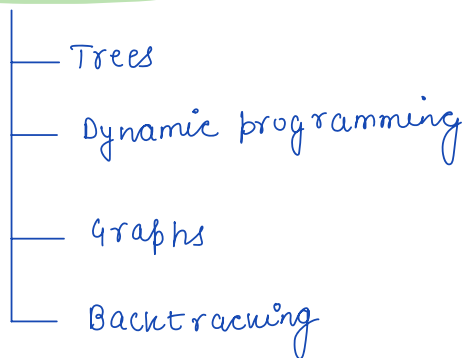 Trees
Dynamic programming
Graphs
Backtracking